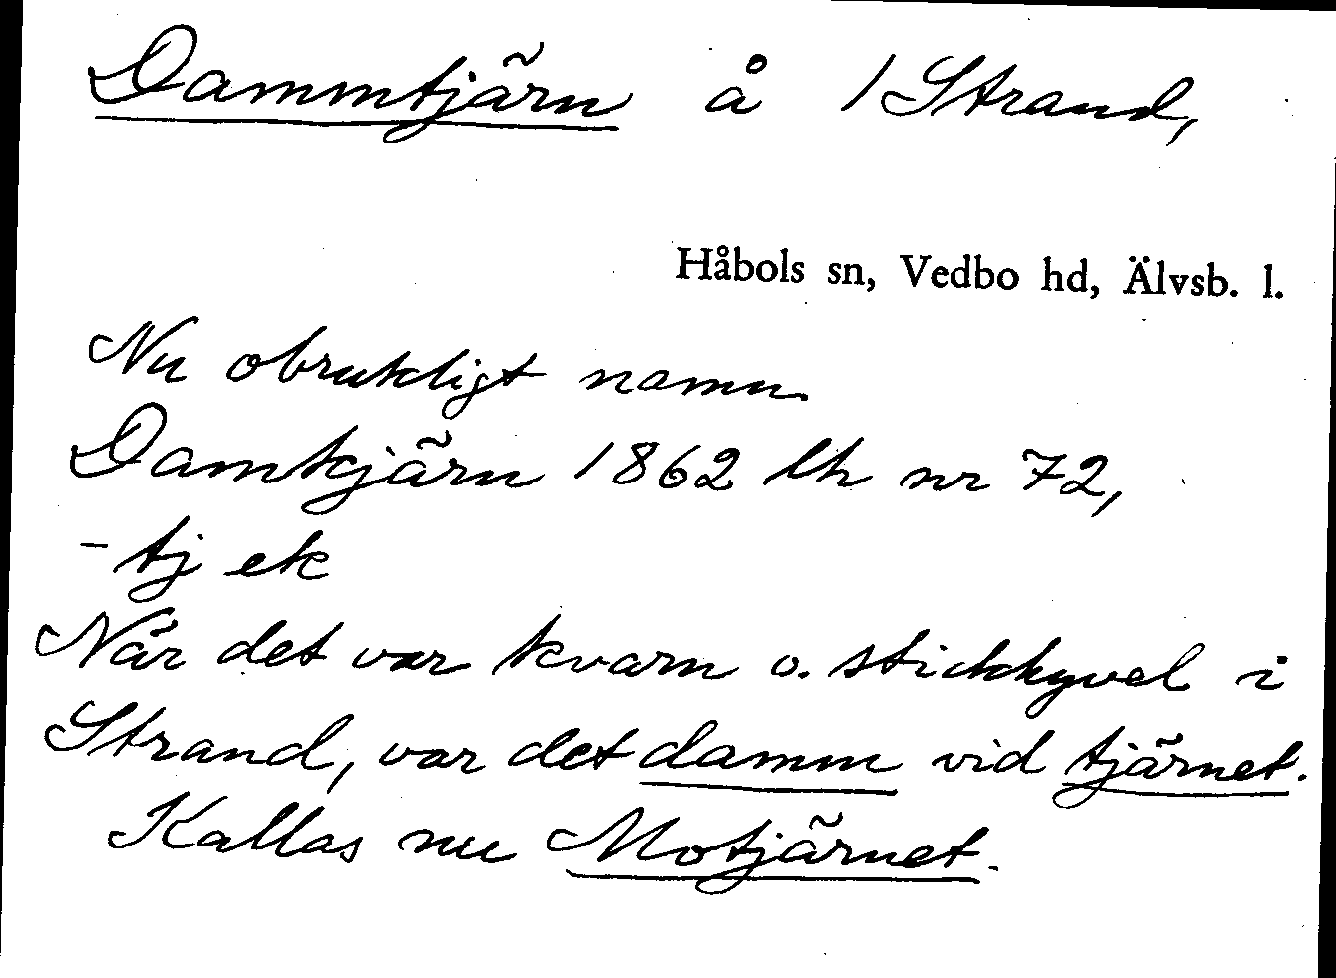 Dammtjärn å 1 Strand,
Håbols sn, Vedbo hd, Älvsb. l.
Nu obrukligt namn.
Damkjärn 1862 lh nr 72,
- tj ek
När det var kvarn o. stickhyvel i
Strand, var det damm vid tjärnet.
Kallas nu Motjärnet.